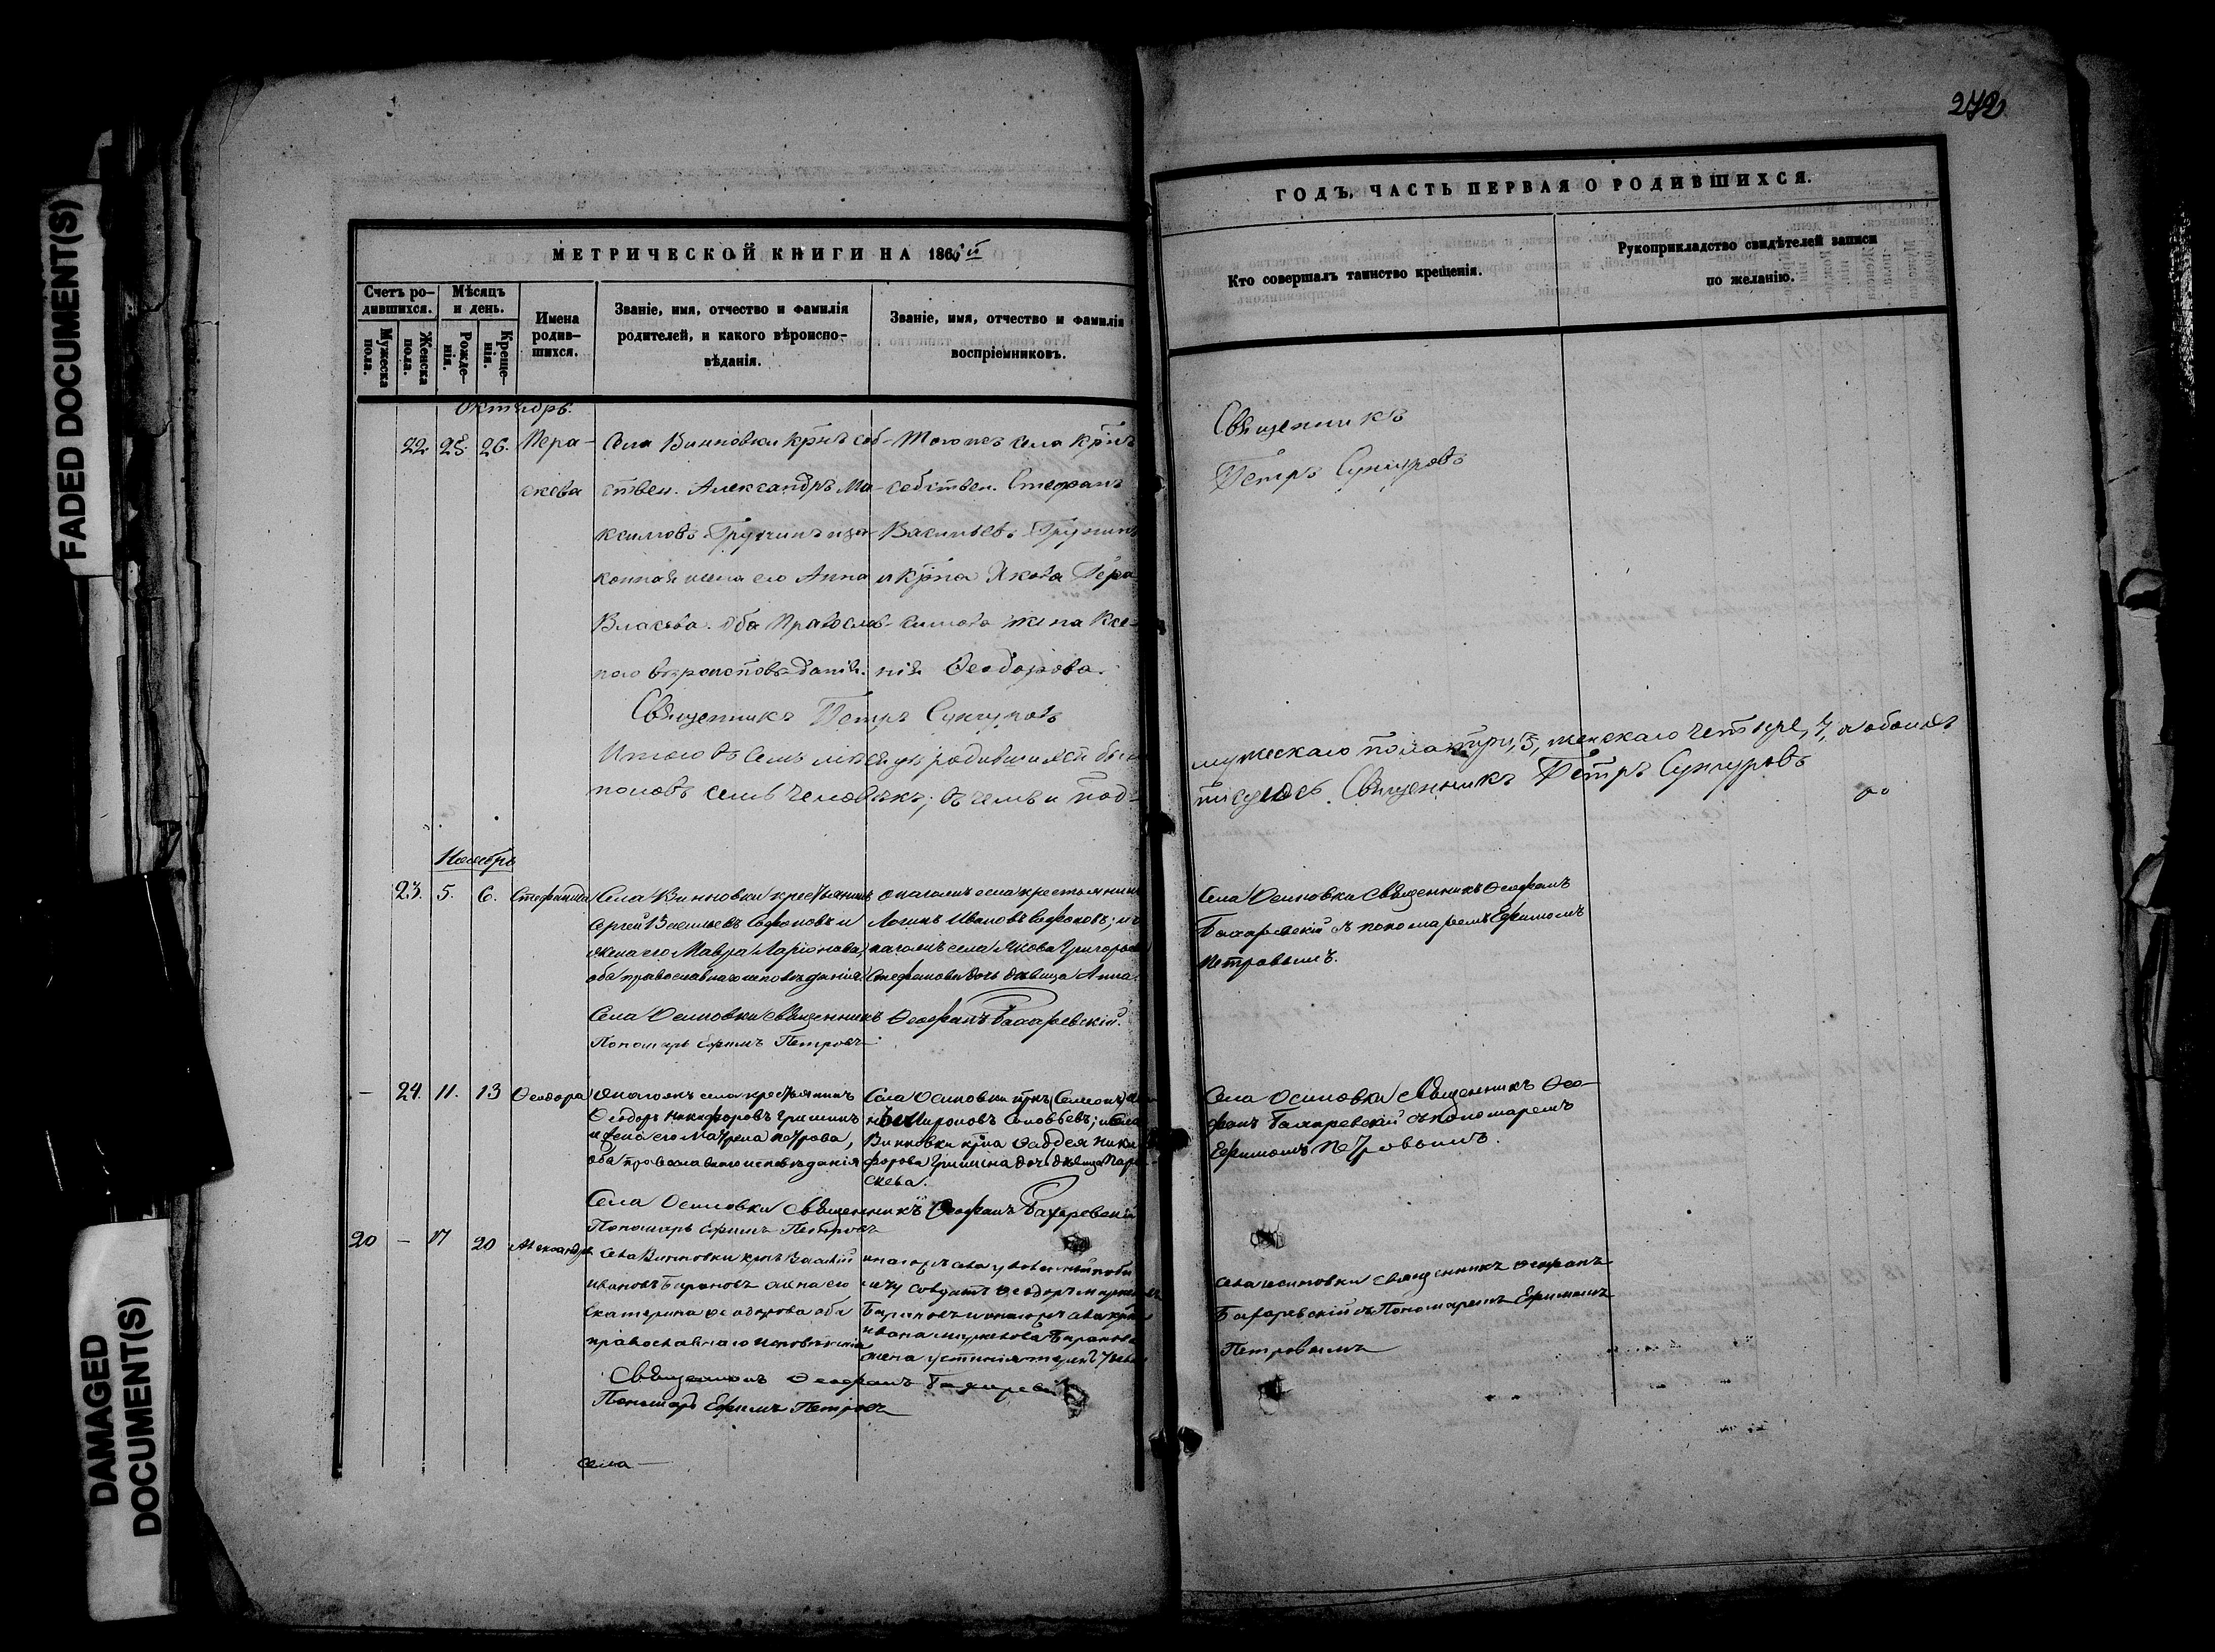 FADED DOCUMENT(S)
DAMAGED
DOCUMENT(S)
272
МЕТРИЧЕСКОЙ КНИГИ НА 186
Счетъ ро-
дившихся.
Мѣсяцъ
и день.
Мужеска
пола.
Женска
пола.
Рожде-
нія.
Креще-
нія.
Имена
родив-
шихся.
Званіе, имя, отчество и фамилія
родителей, и какого вѣроиспо-
вѣданія.
Званіе, имя, отчество и фамилія
воспріемниковъ.
Октябрь.
22. 25. 26. Пара-
скева
Села Винновки крнъ соб-
ствен. Александръ Ма-
ксимовъ Грушинъ и за-
конная жена его Анна
Власова. оба Православ-
наго вѣроисповѣданія.
Того же села крнъ
собствен. Стефанъ
Васильевъ Грушинъ
и крна Якова Гера-
симова жена Ксе-
нія Ѳеодорова.
Священникъ Петръ Сунгуровъ
Итого въ семъ мѣсяцѣ родившихся было
половъ семь человѣкъ; въ чемъ и под-
Ноябрь
23. 5. 6. Стефанида
Села Винновки крестьянинъ
Сергей Васильевъ Софоновъ и
жена его Мавра Ларіонова,
оба православнаго исповѣданія
онагожъ села крестьянинъ
Логинъ Ивановъ Софоновъ; и
онагожъ села Якова Григорьева
Стефанова дочь дѣвица Анна.
Села Осиновки Священникъ Ѳеофанъ Бахаревскій.
Пономарь Ефимъ Петровъ
— 24. 11. 13 Ѳеодора
Онагожъ села крестьянинъ
Ѳеодоръ Никифоровъ Гришинъ
и жена его Матрена Петрова,
оба православнаго исповѣданія
Села Осиновки крнъ Семенъ
Мироновъ Соловьевъ; и села
Винновки крна Фаддея Ники-
форова Гришина дочь дѣвица Пара-
скева.
Села Осиновки Священникъ Ѳеофанъ Бахаревскій
Пономарь Ефимъ Петровъ
20 — 17 20 Александръ
Села Винновки крнъ Василій
Ивановъ Барановъ жена его
Екатерина Ѳеодорова оба
православнаго исповѣданія
онагожъ села
солдатъ Ѳеодоръ
Барановъ и онагожъ села крна
Ивана Баранова
жена Устинія
Священникъ Ѳеофанъ Бахаревскій
Пономарь Ефимъ Петровъ
села
ГОДЪ, ЧАСТЬ ПЕРВАЯ О РОДИВШИХСЯ.
Кто совершалъ таинство крещенія.
Рукоприкладство свидѣтелей записи
по желанію.
Священникъ
Петръ Сунгуровъ
мужескаго пола три, 3, женскаго четыре, 4, а обоихъ
писуюсь. Священникъ Петръ Сунгуровъ
Села Осиновки Священникъ Ѳеофанъ
Бахаревскій съ пономаремъ Ефимомъ
Петровымъ.
Села Осиновки Священникъ Ѳео-
фанъ Бахаревскій съ пономаремъ
Ефимомъ Петровымъ.
Села Осиновки Священникъ Ѳеофанъ
Бахаревскій съ Пономаремъ Ефимомъ
Петровымъ